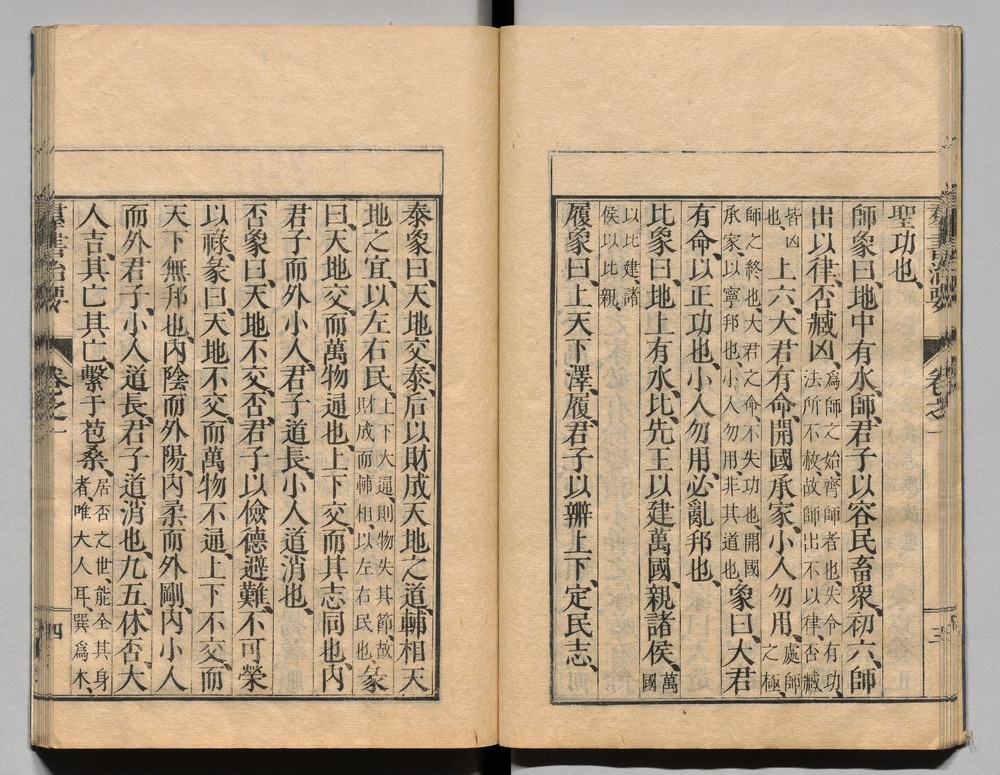 羣書治要 卷之一 三
聖功也、
師象曰、地中有水、師、君子以容民畜衆、初六、師
出以律、否臧凶、爲師之始、齊師者也、失令有功、
法所不赦、故師出不以律、否臧
皆凶也、上六、大君有命、開國承家、小人勿用、處師之極、
師之終也、大君之命、不失功也、開國
承家、以寧邦也、小人勿用、非其道也、象曰、大君
有命、以正功也、小人勿用、必亂邦也、
比象曰、地上有水、比、先王以建萬國、親諸侯、萬國
以比建、諸
侯以比親、
履象曰、上天下澤、履、君子以辨上下、定民志、
泰象曰、天地交、泰、后以財成天地之道、輔相天
地之宜、以左右民、上下大通、則物失其節、故
財成而輔相、以左右民也、彖
曰、天地交、而萬物通也、上下交、而其志同也、內
君子而外小人、君子道長、小人道消也、
否象曰、天地不交、否、君子以儉德避難、不可榮
以祿、彖曰、天地不交、而萬物不通、上下不交、而
天下無邦也、內陰而外陽、內柔而外剛、內小人
而外君子、小人道長、君子道消也、九五、休否、大
人吉、其亡其亡、繫于苞桑、居否之世、能全其身
者、唯大人耳、巽爲木、
羣書治要 卷之一 四